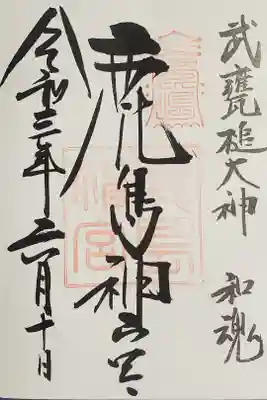 武甕槌大神 和魂
鹿島神宮
令和三年六月十日